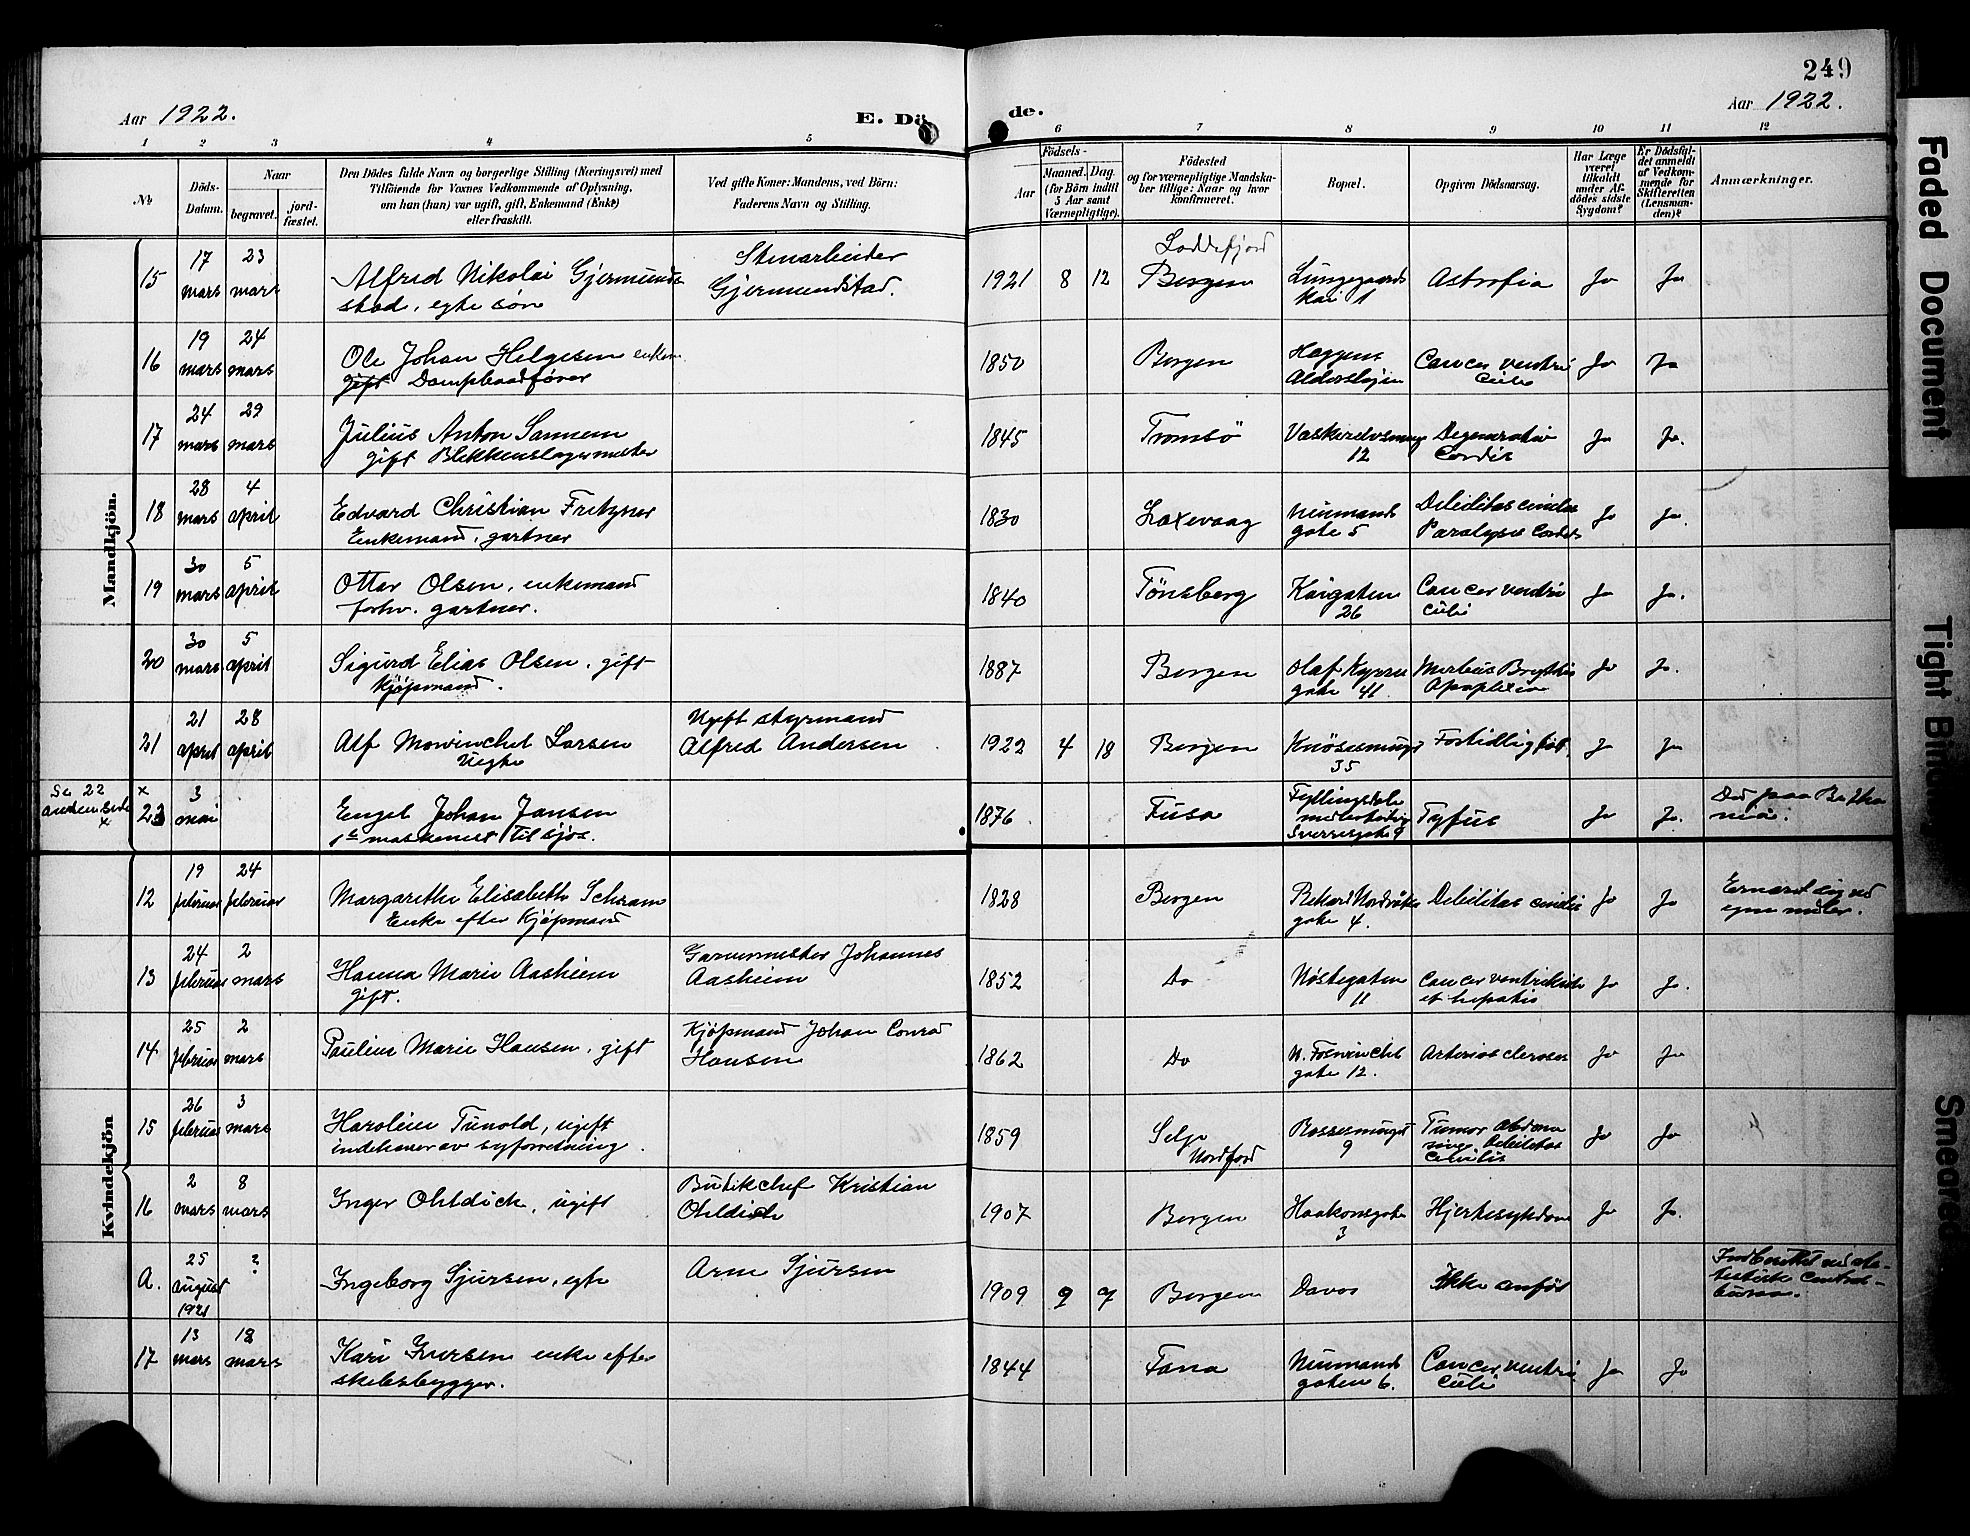 249
Aar 1922.
E. Dö
de.
Aar 1922.
1 2 3 4 5 6 7 8 9 10 11 12
No
Döds-
Datum.
Naar
begravet.
jord-
fæstet.
Den Dödes fulde Navn og borgerlige Stilling (Næringsvei) med
Tilföiende for Voxnes Vedkommende af Oplysning,
om han (hun) var ugift, gift, Enkemand (Enke)
eller fraskilt.
Ved gifte Koner: Mandens, ved Börn:
Faderens Navn og Stilling.
Födsels-
Aar
Maaned. Dag.
(for Börn indtil
5 Aar samt
Værnepligtige).
Födested
og for værnepligtige Mandska-
ber tillige: Naar og hvor
konfirmeret.
Bopæl.
Opgiven Dödsaarsag.
Har Læge
været
tilkaldt
under Af-
dödes sidste
Sygdom?
Er Dödsfal-
det anmeldt
af Vedkom-
mende for
Skifteretten
(Lensman-
den)?
Anmærkninger.
Mandkjön.
15
17 mars
23 mars
Alfred Nikolai Gjermund-
stad, egte søn
Stenarbeider
Gjermundstad.
1921 8 12
Loddefjord
Bergen
Lungegaards
kai 1
Astrofia
Ja
Ja
16
19 mars
24 mars
Ole Johan Helgesen enkem.
gift Dampbaadfører
1850
Bergen
Haggens
Aldershjem
Cancer ventri
culi
Ja
Ja
17
24 mars
29 mars
Julius Anton Sannem
gift Blikkenslagermester
1845
Tromsö
12
Degeneratio
Cordis
Ja
Ja.
18
28 mars
4 april
Edvard Christian Fritzner
Enkemand, gartner
1830
Laxevaag
Neumanns
gate 5
Debilitas cenilis
Paralysis Cordis
Ja
Ja.
19
30 mars
5 april
Otter Olsen, enkemand
forhv. gartner.
1840
Tönsberg
Kaigaten
26
Cancer ventri
culi
Ja
Ja.
20
30 mars
5 april
Sigurd Elias Olsen, gift
Kjøpmand.
1887
Bergen
Olaf Kyrres
gate 41
Morbus Brightii
Apoplexia
Ja
Ja.
21
21 april
28 april
Alf Mowinckel Larsen
Uegte
Ugift styrmand
Alfred Andersen
1922 4 18
Bergen
Knösesmuget
35
Fortidlig föt.
Ja
Ja
Se 22
anden side
x
x
23
3 mai
Engel Johan Jansen
1ste maskinist til sjøs.
1876
Fusa
Fyllingsdale
Sverresgate 9
Tyfus
Ja
Ja.
Død paa
Kvindekjön
12
19 februar
24 februar
Margarethe Elisabeth Schram
Enke efter Kjøpmand
1828
Bergen
Rikard Nordråks
gate 4.
Debilitas cenilis
Ja
Ja
Ernæret sig ved
egne midler.
13
24 februar
2 mars
Hanna Marie Aasheim
gift.
Garvermester Johannes
Aasheim
1852
Do
Nøstegaten
11
Cancer ventrikuli
et hepatis
Ja
Ja.
14
25 februar
2 mars
Pauline Marie Hansen, gift
Kjøpmand Johan Conrad
Hansen
1862
Do
gate 12.
Arteriosclerose
Ja
Ja
15
26 februar
3 mars
Haroline Tunold, ugift
indehaver av syforretning.
1859
Selje
Nordfjord
Rossesmuget
9
Tumor abdomi
Debilitas
cenilis
Ja
Ja
16
2 mars
8 mars
Inger Ohldick, ugift
Butikchef Kristian
Ohldick
1907
Bergen
Haakonsgate
3
Hjertesykdom
Ja
Ja.
A.
25 august 1921
?
Ingeborg Sjursen, egte
Arne Sjursen
1909 9 9
Bergen
Davos
Ikke anført
Indberettet ved sta-
tistisk Central-
bureau.
17
13 mars
18 mars
Kari Iversen enke efter
skibsbygger.
1844
Fana
Neumanns
gaten 6.
Cancer ventri
culi
Ja
Ja
Faded Document
Tight Binding
Smeared